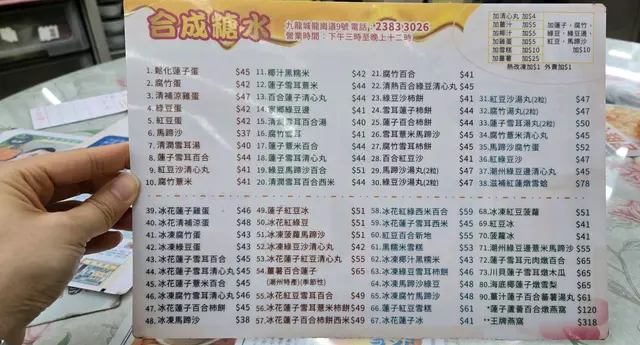 合成糖水
九龍城龍崗道9號 電話：2383 3026
營業時間：下午三時至晚上十二時
加清心丸 加$4
加薑汁 加$5
加椰汁 加$5
加雞蛋 加$5
加雪糕 加$10
加薑薯 加$25
加蓮子、腐竹、
綠豆、綠豆邊、
紅豆、馬蹄沙
加$10
熱改凍加$1 外賣加$1
1. 鬆化蓮子蛋 $45
2. 腐竹蛋 $42
3. 清補涼雞蛋 $47
4. 綠豆蛋 $42
5. 紅豆蛋 $42
6. 馬蹄沙 $37
7. 清潤雪耳湯 $40
8. 蓮子雪耳百合 $44
9. 紅豆沙清心丸 $41
10. 腐竹薏米 $41
11. 椰汁黑糯米 $42
12. 蓮子雪耳薏米 $44
13. 百合蓮子清心丸 $44
14. 家鄉綠豆邊 $41
15. 清潤雪耳百合湯 $40
16. 腐竹雪耳 $41
17. 蓮子薏米百合 $44
18. 蓮子雪耳清心丸 $44
19. 綠豆沙清心丸 $41
20. 清潤雪耳百合西米 $44
21. 腐竹百合 $41
22. 清熱百合綠豆清心丸 $45
23. 綠豆沙柿餅 $41
24. 蓮子百合柿餅 $44
25. 蓮子雪耳柿餅 $44
26. 雪耳薏米馬蹄沙 $44
27. 腐竹雪耳柿餅 $44
28. 百合紅豆沙 $41
29. 馬蹄沙湯丸(2粒) $47
30. 綠豆沙湯丸(2粒) $47
31. 紅豆沙湯丸(2粒) $47
32. 腐竹湯丸(2粒) $47
33. 蓮子雪耳湯丸(2粒) $50
34. 腐竹薏米清心丸 $45
35. 馬蹄沙腐竹蛋 $52
36. 紅綠豆沙 $47
37. 潮州綠豆邊清心丸 $45
38. 滋補紅蓮燉雪蛤 $78
39. 冰花蓮子雞蛋 $46
40. 冰花清補涼 $48
41. 冰凍腐竹蛋 $43
42. 冰凍綠豆蛋 $43
43. 冰花蓮子雪耳百合 $45
44. 冰花蓮子雪耳清心丸 $45
45. 冰花清潤雪耳百合 $41
46. 冰凍腐竹清心丸 $42
47. 冰花腐竹柿餅 $45
48. 冰凍馬蹄沙 $38
49. 蓮子紅豆冰 $51
50. 冰花紅綠豆 $48
51. 冰凍菠蘿馬蹄沙 $55
52. 冰凍綠豆沙清心丸 $42
53. 冰花蓮子百合清心丸 $45
54. 薑薯百合蓮子 $65
(潮州特產)(季節性)
55. 冰花綠豆雪耳百合 $45
56. 冰花蓮子雪耳薏米柿餅 $48
57. 冰花蓮子百合柿餅西米 $49
58. 冰花紅綠百合西米 $59
59. 冰花紅綠西米 $55
60. 紅豆百合新地 $55
61. 黑糯米雪糕 $53
62. 冰凍椰汁黑糯米 $43
63. 冰凍綠豆雪耳柿餅 $46
64. 冰凍馬蹄綠豆沙 $48
65. 冰凍腐竹馬蹄沙 $48
66. 冰花蓮子紅綠豆雪糕 $61
67. 冰花蓮子冰 $41
68. 冰凍紅豆菠蘿 $51
69. 紅豆冰 $41
70. 菠蘿冰 $41
71. 潮州綠豆邊薏米馬蹄沙 $55
72. 蓮子雪耳元肉燉百合 $65
73. 川貝蓮子雪耳燉木瓜 $65
80. 海底椰蓮子燉雪梨 $65
90. 薑汁蓮子百合蕃薯湯丸 $61
*蓮子蘆薈百合燉燕窩 $120
**王牌燕窩 $318